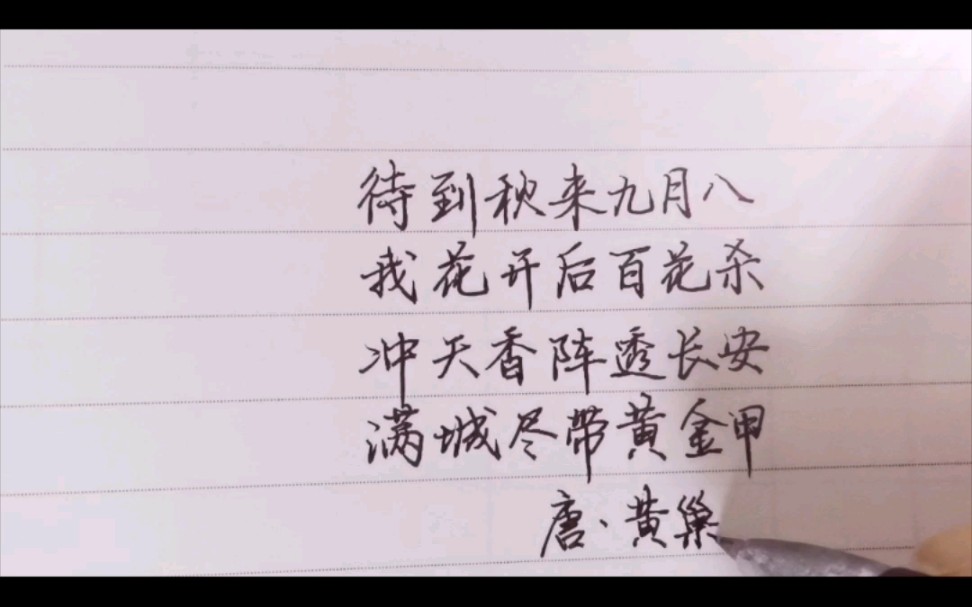 待到秋来九月八
我花开后百花杀
冲天香阵透长安
满城尽带黄金甲
唐·黄巢